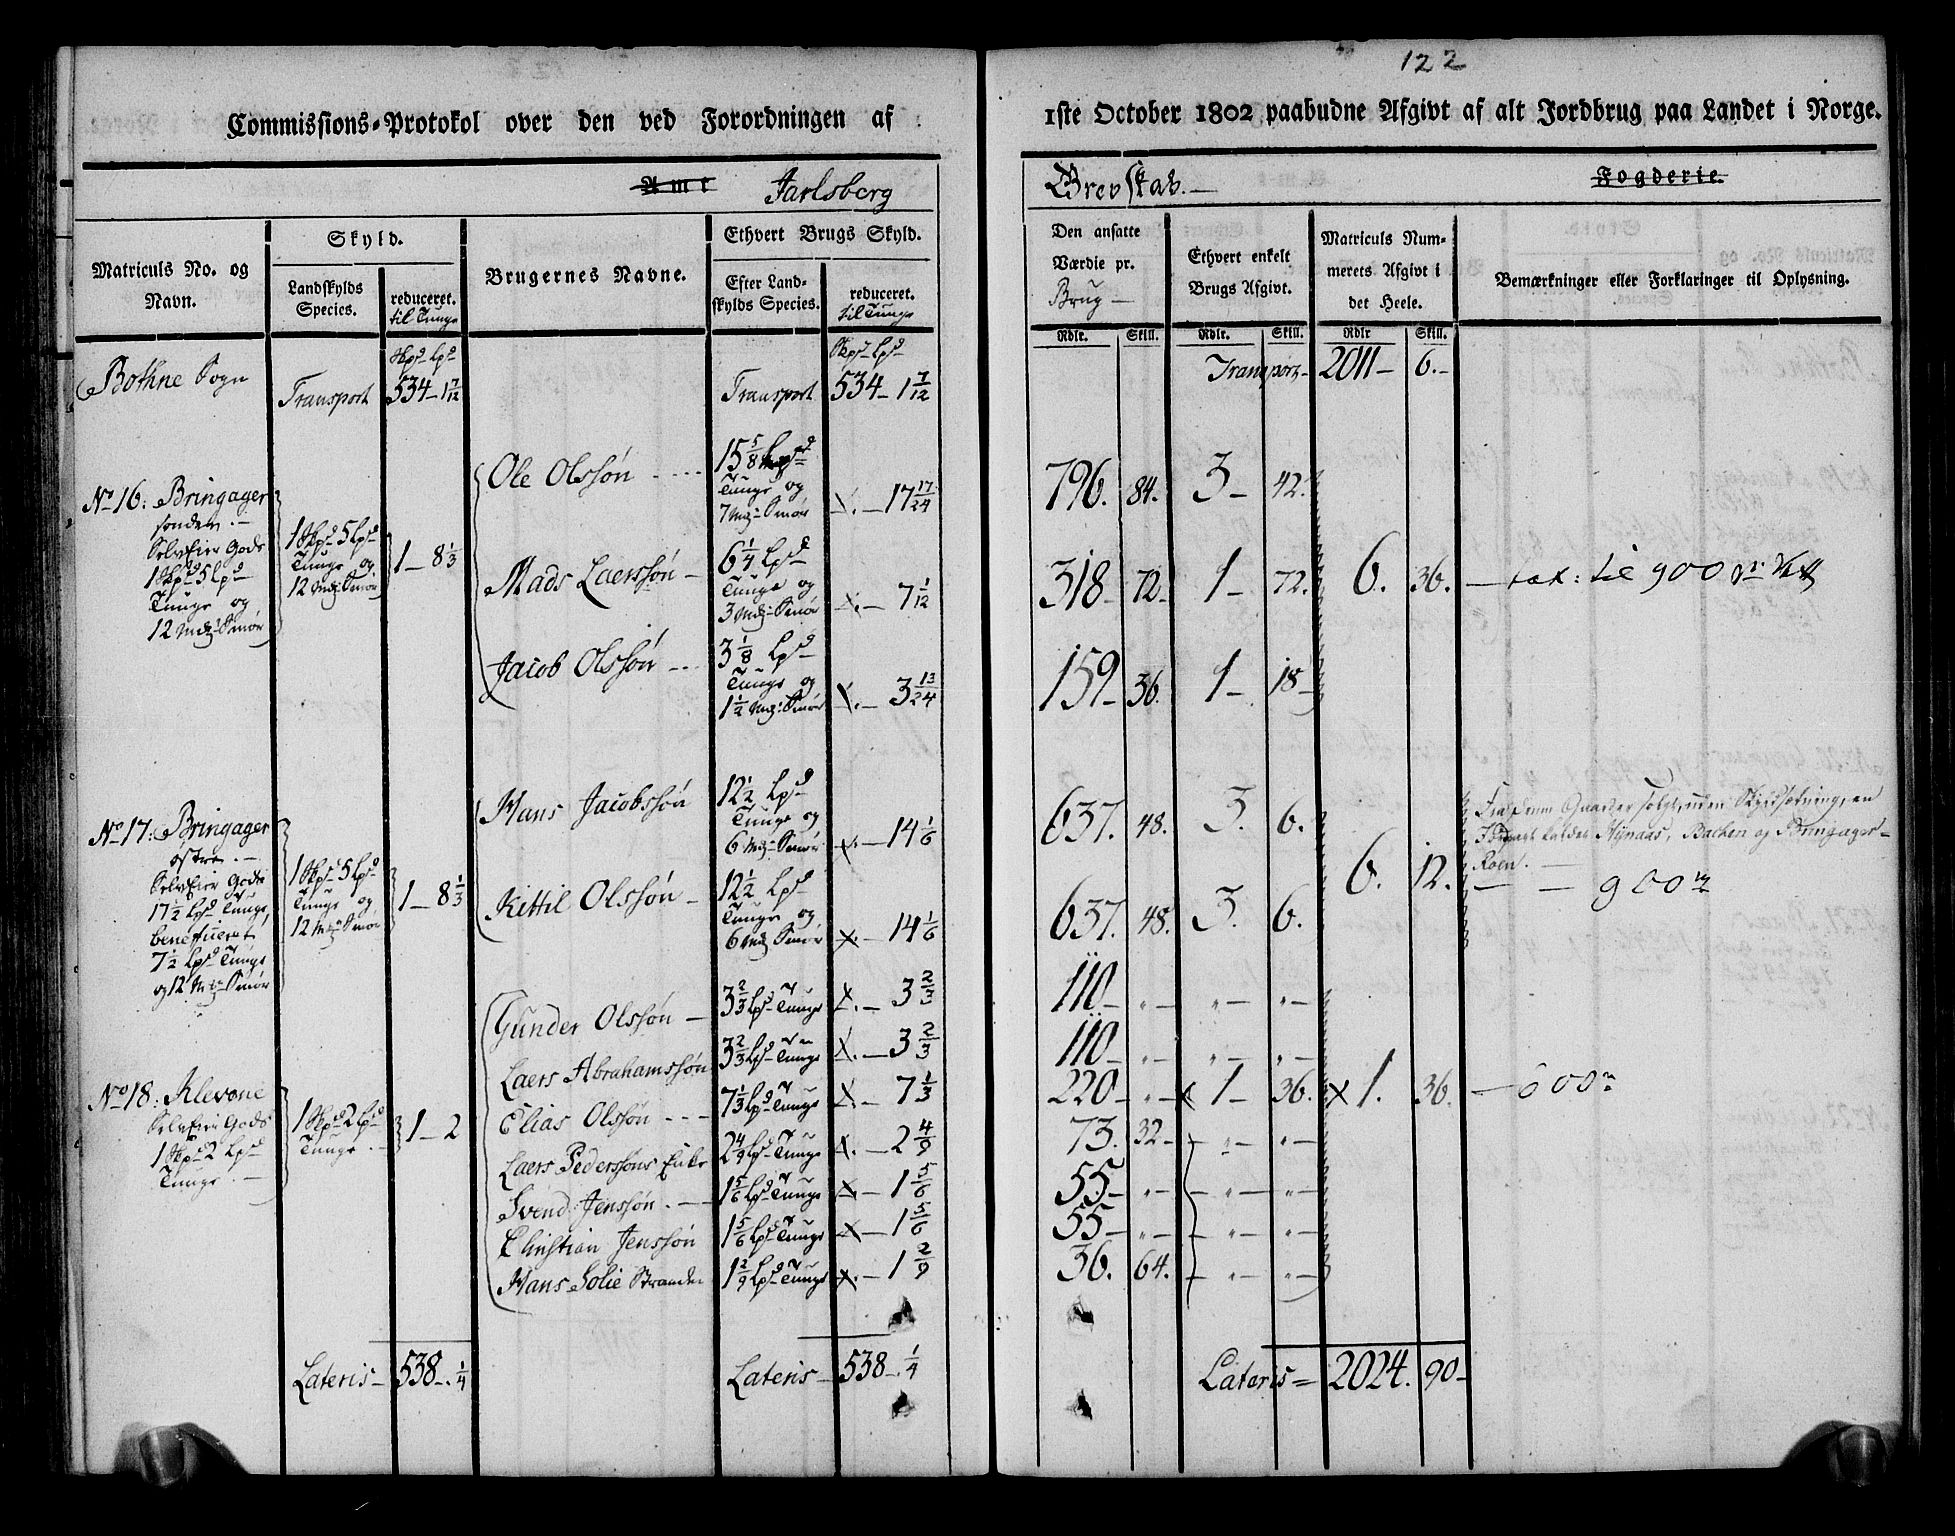 122
Commissions-Protokol over den ved Forordningen af 1ste October 1802 paabudne Afgivt af alt Jordbrug paa Landet i Norge.
Amt Jarlsberg Grevskab. Fogderie.
Matriculs No. og Navn.
Skyld.
Landskylds Species.
reduceret. til Tunge
Brugernes Navne.
Ethvert Brugs Skyld.
Efter Landskylds Species.
reduceret. til Tunge
Den ansatte Værdie pr. Brug
Ethvert enkelt Brugs Afgivt.
Matriculs Nummerets Afgivt i det Heele.
Bemærkninger eller Forklaringer til Oplysning.
Rdlr. Skill. Rdlr. Skill. Rdlr Skill.
Skpd Lpd Skpd Lpd
Bothne Sogn Transport 534 - 1 7/12 Transport 534 - 1 7/12 Transport 2011 - 6.
No 16: Bringager
sondere.
Selveier Gods
1 Skpd 5 Lpd
Tunge og
12 Mrk: Smør
1 Skpd 5 Lpd
Tunge og
12 Mrk: Smør
1 - 8 1/3
Ole Olssøn
15 5/8 Lpd
Tunge og
7 Mrk: Smør
17 17/24
796. 84. 3 - 42.
Mads Laerssøn
6 1/4 Lpd
Tunge og
3 Mrk: Smør
7 1/12
318 - 72. 1 - 72. 6. 36. tax: til 900
Jacob Olssøn
3 1/8 Lpd
Tunge og
1 1/2 Mrk: Smør
3 13/24
159 - 36. 1 - 18
No 17: Bringager
østre.
Selveier Gods
17 1/2 Lpd Tunge,
beneficeret
7 1/2 Lpd Tunge
og 12 Mrk Smør
1 Skpd 5 Lpd
Tunge og
12 Mrk Smør
1 - 8 1/3
Hans Jacobssøn
12 1/2 Lpd
Tunge og
6 Mrk: Smør
14 1/6
637. 48. 3. 6.
Kittil Olssøn
12 1/2 Lpd
Tunge og
6 Mrk Smør
14 1/6
637. 48. 3. 6.
6. 12.
Fra denne Gaard er solgt, uden Skyldsætning, en
kaldet Bachen og Bringager-
900
No 18: Klevene
Selveier Gods
1 Skpd 2 Lpd
Tunge.
1 Skpd 2 Lpd
Tunge.
1 - 2
Gunder Olssøn 3 2/3 Lpd Tunge 3 2/3 110
Laers Abrahamssøn 3 2/3 Lpd Tunge 3 2/3 110
Elias Olssøn 7 1/3 Lpd Tunge 7 1/3 220 1 - 36. 1. 36. 600
Laers Pederssøns Enke 2 4/9 Lpd Tunge 2 4/9 73. 32
Svend Jenssøn. 1 5/6 Lpd Tunge 1 5/6 55
Christian Jenssøn 1 5/6 Lpd Tunge 1 5/6 55
Hans Solie Stranden 1 2/9 Lpd Tunge 1 2/9 36. 64.
Lateris 538 - 1/4 Lateris 538 - 1/4 Lateris 2024. 90